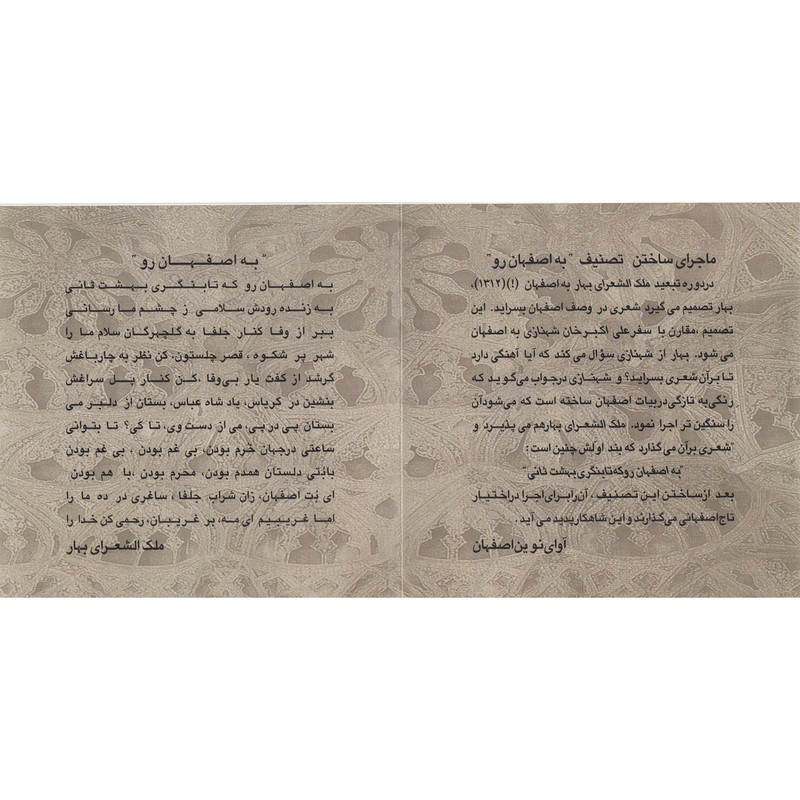 ماجرای ساختن تصنیف " به اصفهان رو "
دردوره تبعید ملک الشعرای بهار به اصفهان (!)(۱۳۱۲)،
بهار تصمیم می گیرد شعری در وصف اصفهان بسراید. این
تصمیم ،مقارن با سفرعلی اکبرخان شهنازی به اصفهان
می شود. بهار از شهنازی سؤال می کند که آیا آهنگی دارد
تا برآن شعری بسراید؟ و شهنازی درجواب می گوید که
رنگی به تازگی دربیات اصفهان ساخته است که می شودآن
را سنگین تر اجرا نمود. ملک الشعرای بهارهم می پذیرد و
شعری برآن می گذارد که بند اولش چنین است :
"به اصفهان روکه تابنگری بهشت ثانی"
بعد ازساختن این تصنیف ، آن رابرای اجرا دراختیار
تاج اصفهانی می گذارند و این شاهکار پدید می آید.
آوای نوین اصفهان
" به اصفهان رو "
به اصفهان رو که تابنگری بهشت ثانی
به زنده رودش سلامی ز چشم ما رسانی
ببر از وفا کنار جلفا به گلچهرگان سلام ما را
شهر پر شکوه ، قصر چلستون، کن نظر به چارباغش
گرشد از کفت یار بی وفا ،کن کنار پل سراغش
بنشین در کریاس، یاد شاه عباس، بستان از دلبر می
بستان پی در پی، می از دست وی، تا کی؟ تا بتوانی
ساعتی درجهان خُرم بودن، بی غم بودن ، بی غم بودن
با بُتی دلستان همدم بودن، محرم بودن ،با هم بودن
ای بُت اصفهان، زان شراب جلفا ، ساغری در ده ما را
اما غریبیم ای مه، بر غریبان، رحمی کن خدا را
ملک الشعرای بهار